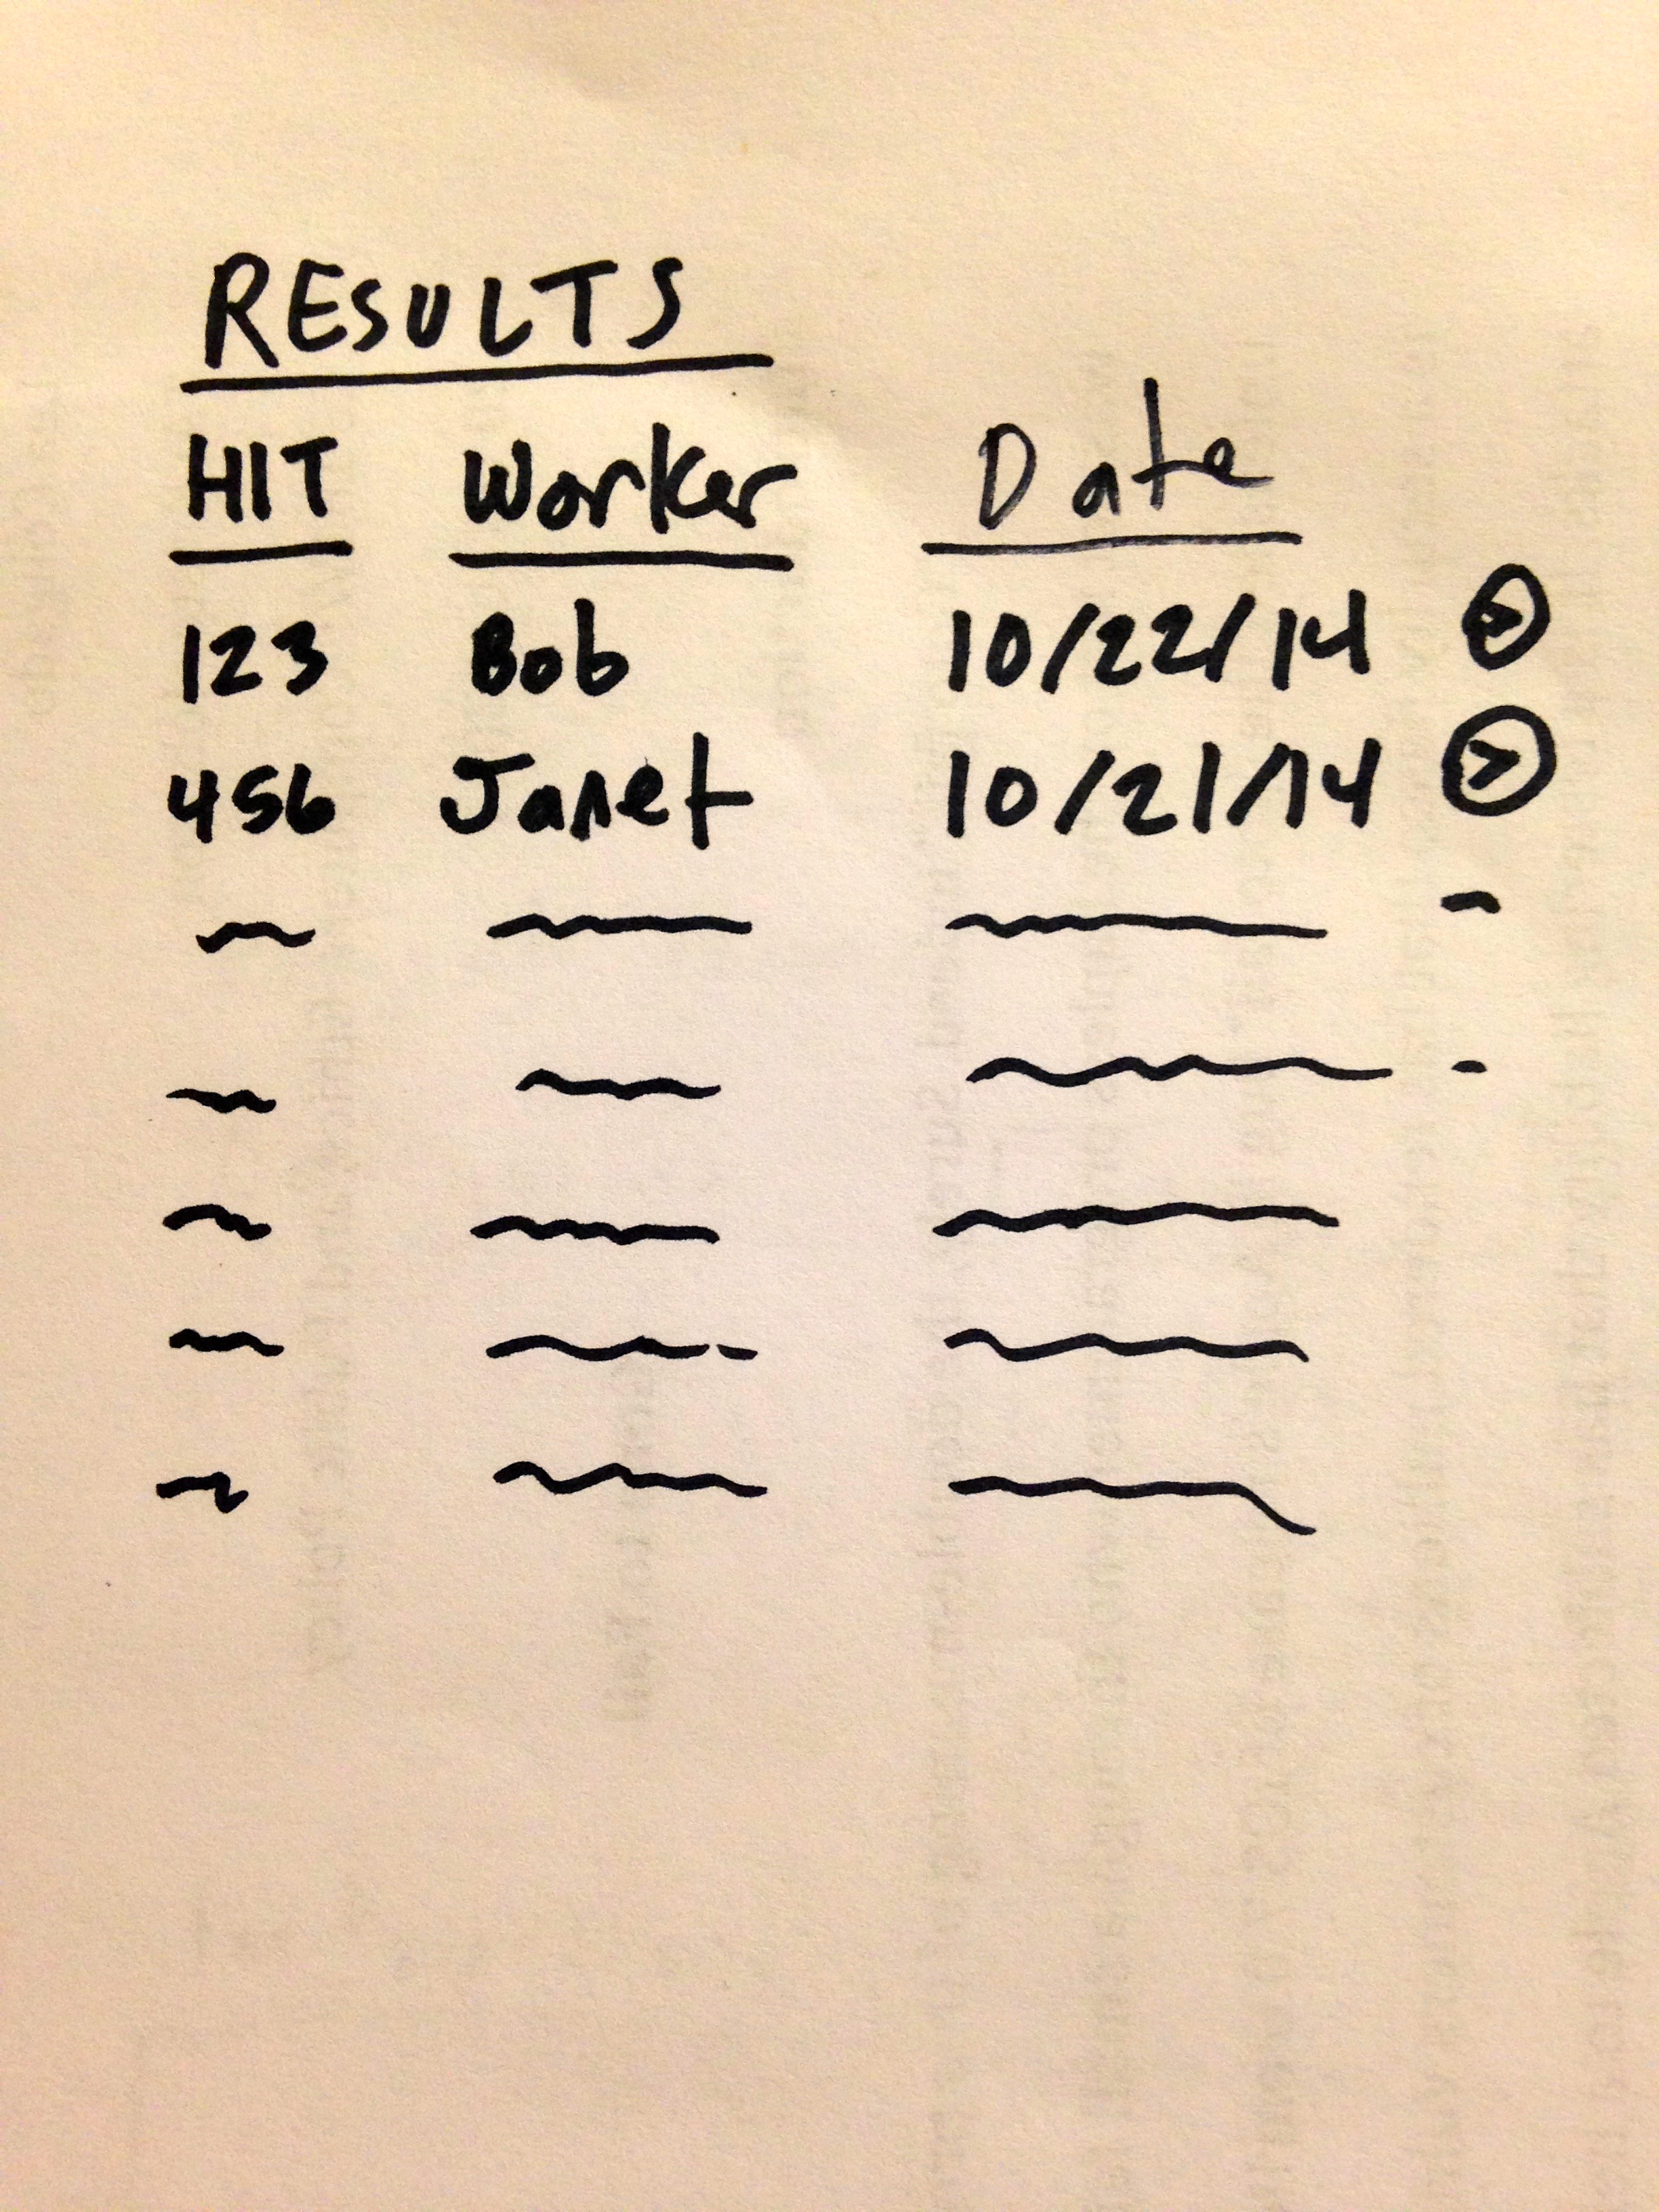 RESULTS
HIT Worker Date
123 Bob 10/22/14 >
456 Janet 10/21/14 >